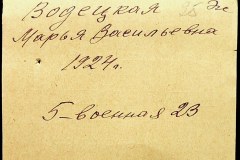 Водецкая
Марья Васильевна
1924г.
5-военная 23